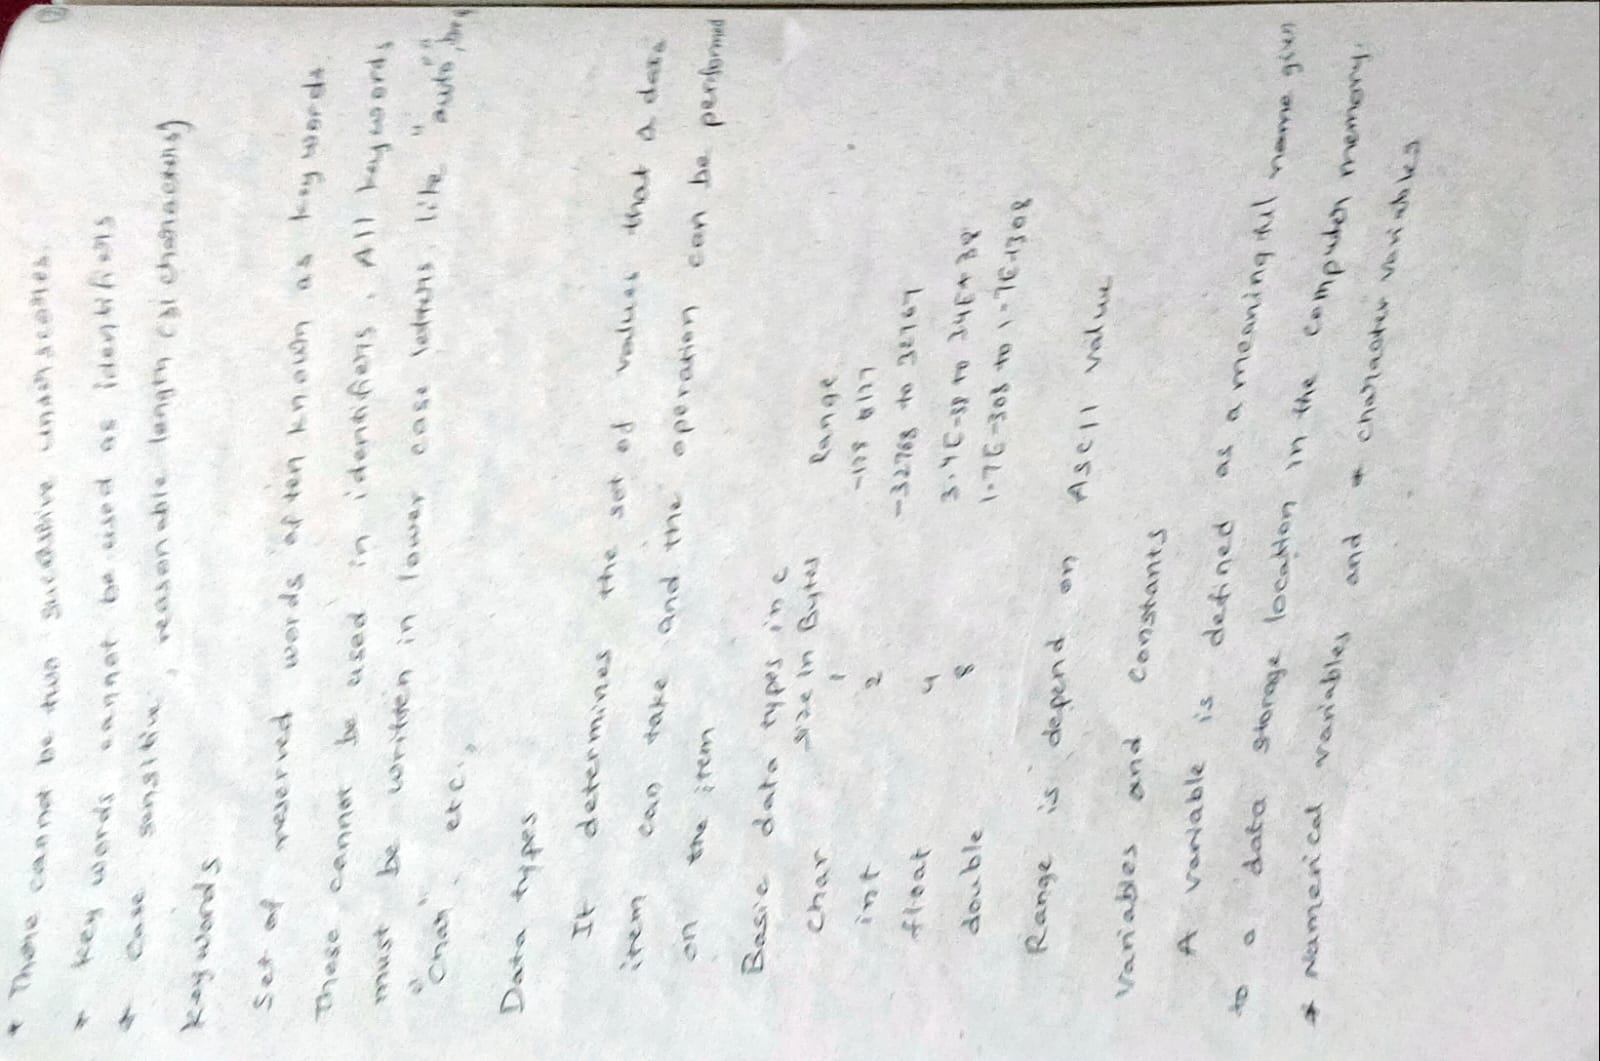 * There cannot be two sucessive underscores.
* key words cannot be used as identifiers
* case sensitive, reasonable length (31 characters)
Keywords
Set of reserved words often known as key words.
These cannot be used in identifiers. All keywords
must be written in lower case letters like "auto",
"char", etc.,
Data types
It determines the set of values that a data
item can take and the operation can be performed
on the item
Basic data types in c
size in Bytes Range
char 1 -128
int 2 -32768 to 32767
float 4 3.4E-38 to 34E+38
double 8 1.7E-308 to 1.7E+308
Range is depend on ASCII value
Variables and constants
A variable is defined as a meaningful name given
to a data storage location in the computer memory.
* Numerical variables and * character variables